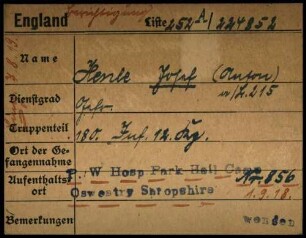 England berichtigung Liste 252 A/224852
Name Henle Josef (Anton)
Dienstgrad Gefr. a/L.215
Truppenteil 180. Inf. 12. Kp.
Ort der Ge-
fangennahme
Aufenthalts- P/W Hosp Park Hall Camp Nr. 856
ort Oswestry Shropshire 1.9.18.
Bemerkungen wenden